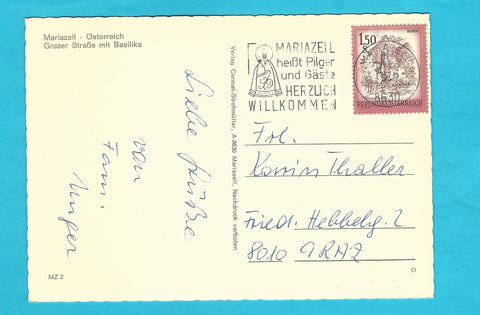 Mariazell - Österreich
Grazer Straße mit Basilika
Liebe Grüße
von
Fam.
Unger
MZ 2
Verlag Cormak-Strohmüller, A-8630 Mariazell, Nachdruck verboten
MARIAZELL
heißt Pilger
und Gäste
HERZLICH
WILLKOMMEN
1.50
S
REPUBLIK ÖSTERREICH
8630
Frl.
Karin Thaller
Friedr. Hebbelg. 2
8010 GRAZ